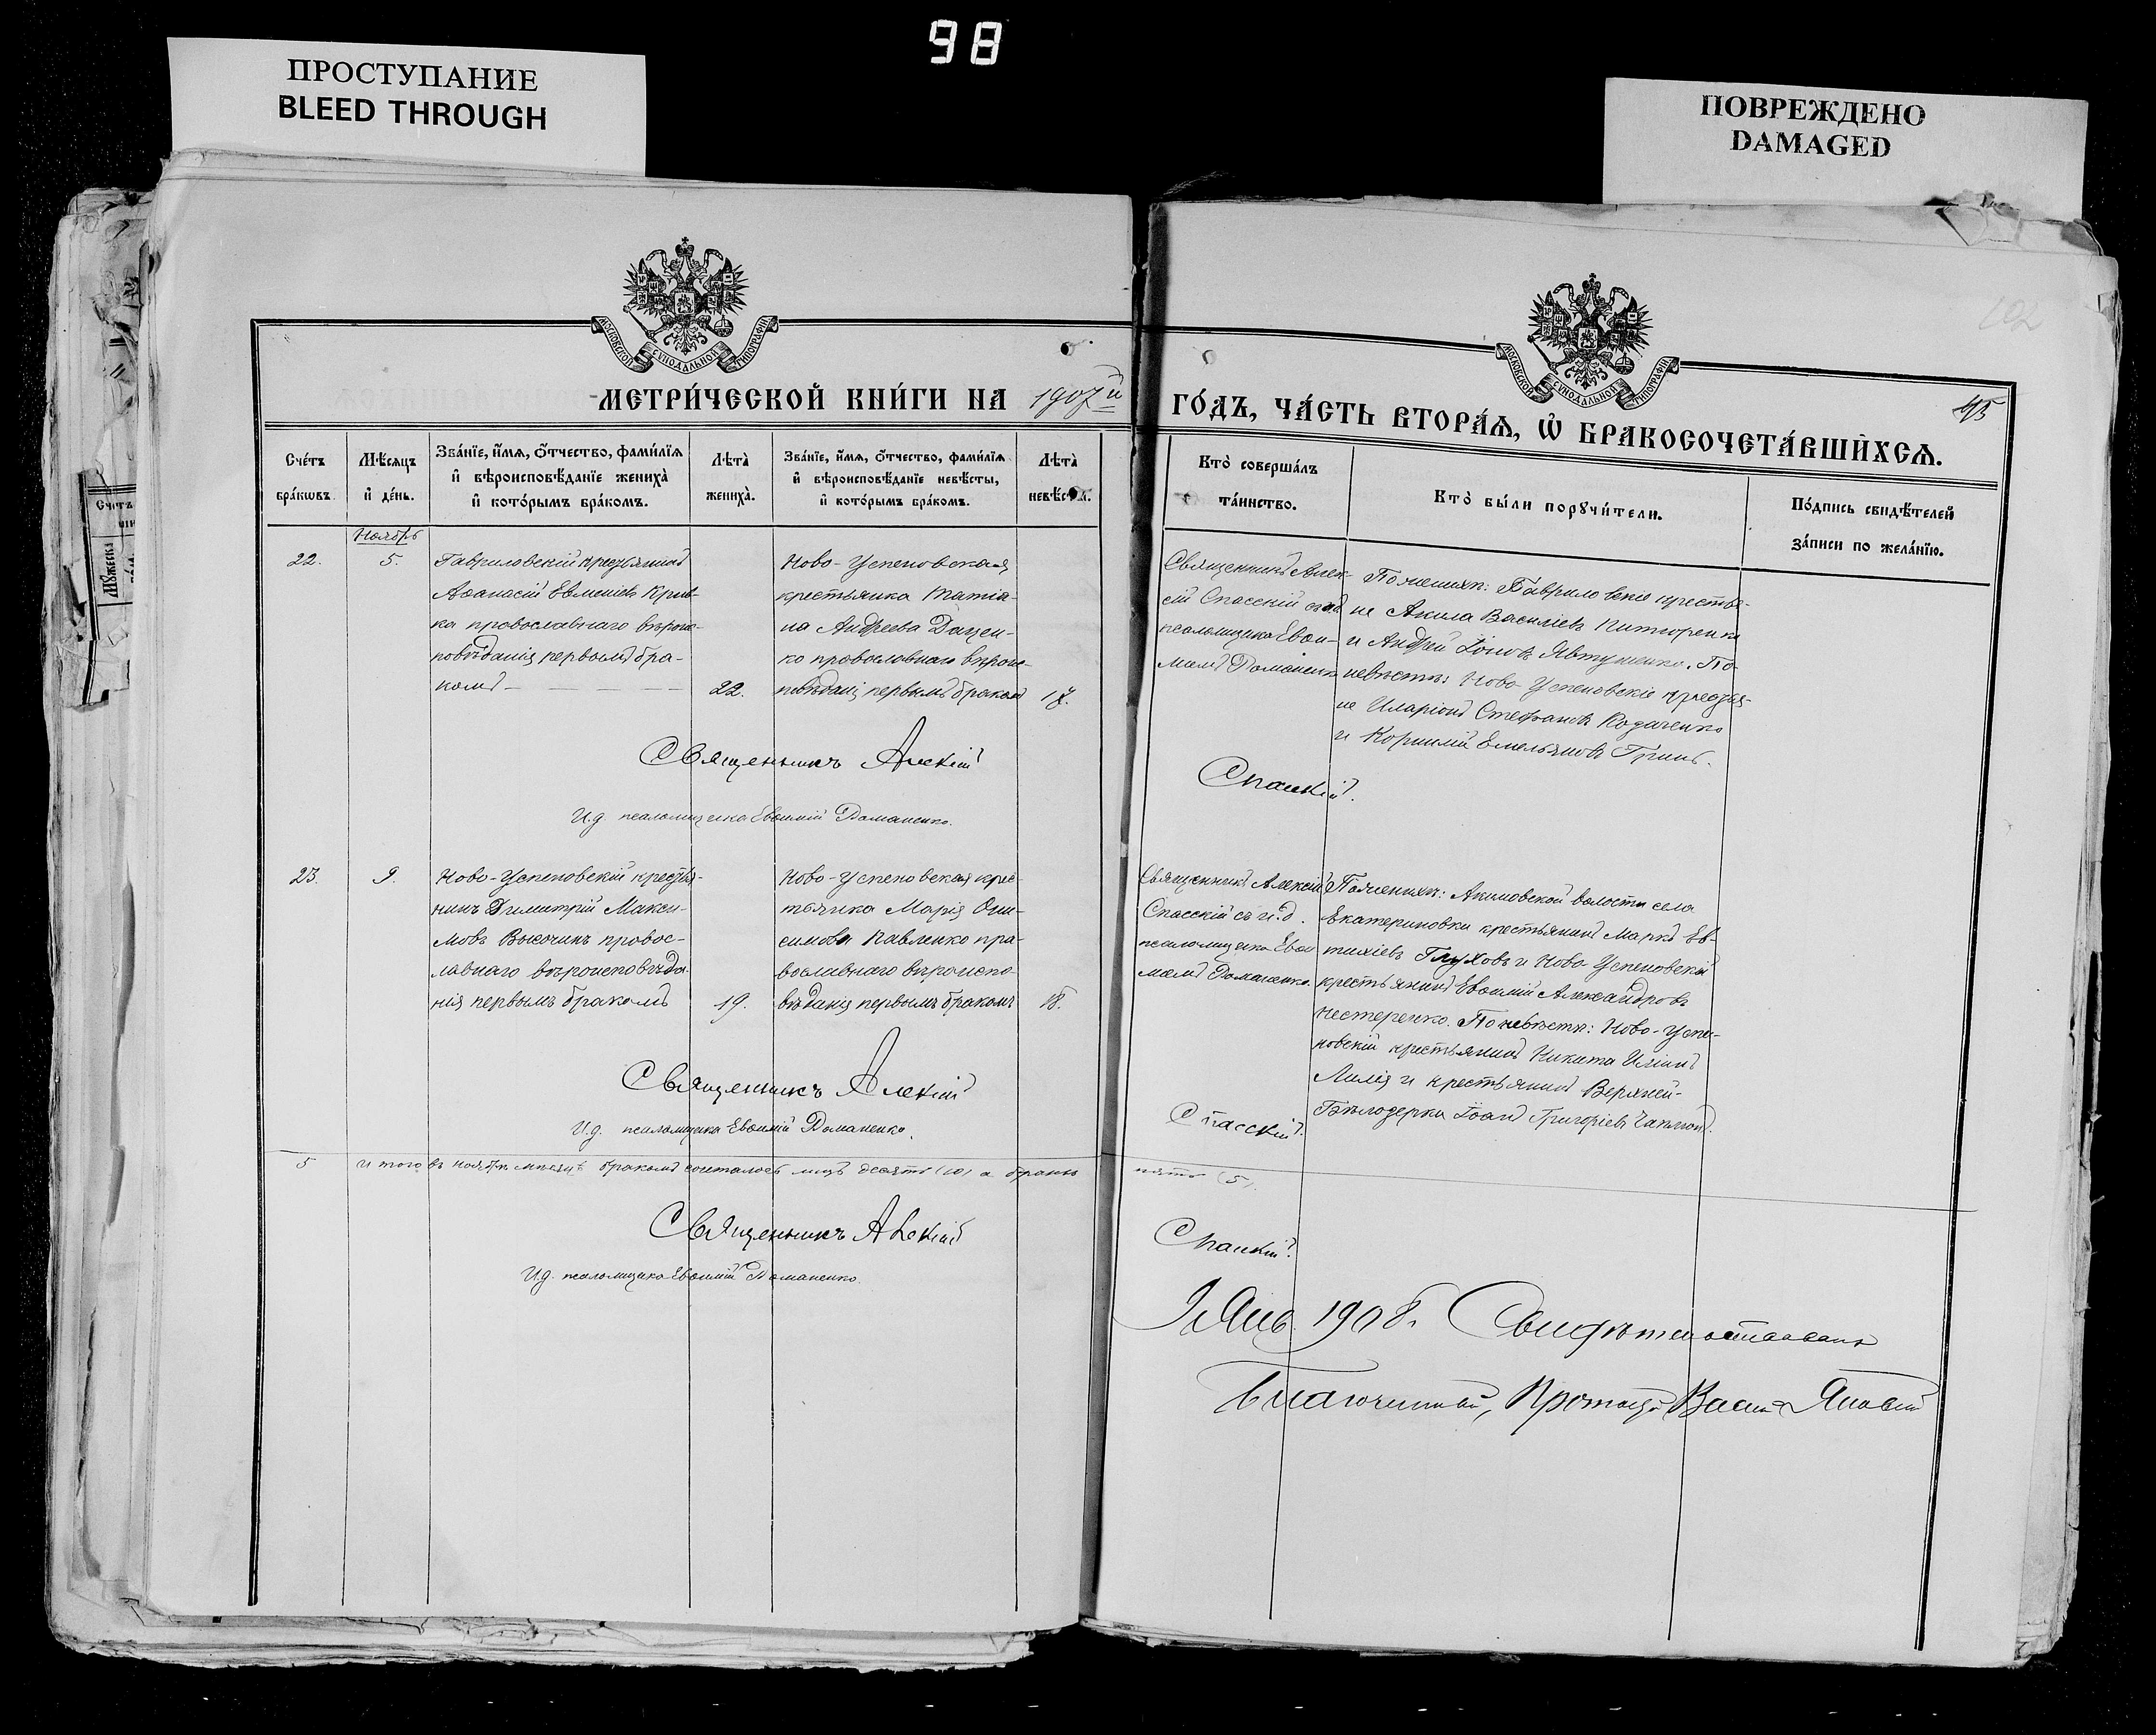 98
ПРОСТУПАНИЕ
BLEED THROUGH
ПОВРЕЖДЕНО
DAMAGED
МОСКОВСКОЙ СѴНОДАЛЬНОЙ ТИПОГРАФІИ
МОСКОВСКОЙ СѴНОДАЛЬНОЙ ТИПОГРАФІИ
МЕТРИ́ЧЕСКОЙ КНИ́ГИ НА 1907й
ГО́ДЪ, ЧА́СТЬ ВТОРА́Ѧ, Ѡ҆ БРАКОСОЧЕТА́ВШИХСѦ.
102
Сче́тъ бра́кѡвъ.
Мѣ́сѧцъ и҆ де́нь.
Зва́нїе, и҆́мѧ, ѻ҆́тчество, фами́лїѧ
и҆ вѣроисповѣ́данїе жениха̀
и҆ кото́рымъ бра́комъ.
Лѣта̀ жениха̀.
Зва́нїе, и҆́мѧ, ѻ҆́тчество, фами́лїѧ
и҆ вѣроисповѣ́данїе невѣ́сты,
и҆ кото́рымъ бра́комъ.
Лѣта̀ невѣ́сты.
Кто̀ соверша́лъ
та́инство.
Кто̀ бы́ли порꙋчи́тели.
По́дпись свидѣ́телей
за́писи по жела́нїю.
Ноябрь
22.
5.
Гавриловскій крестьянинъ
Аѳанасій Евменіевъ Крив-
ка православнаго вѣроис-
повѣданія первымъ бра-
комъ
22.
Ново-Успеновская
крестьянка Татія-
на Андреева Дацен-
ко православнаго вѣроис-
повѣданія первымъ бракомъ
17.
Священникъ Алек-
сій Спасскій съ и.д.
псаломщика Евѳи-
міемъ Доманенко
По женихѣ: Гавриловскіе крестья-
не Акила Василіевъ
и Андрей Іоновъ Явтушенко. По
невѣстѣ: Ново-Успеновскіе крестья-
не Иларіонъ Стефановъ Козаченко
и Корнилій Емельяновъ Гринь.
Священникъ Алексій Спасскій.
И.д. псаломщика Евѳимій Доманенко.
23.
9.
Ново-Успеновскій крестья-
нинъ Димитрій Макси-
мовъ Высочинъ правос-
лавнаго вѣроисповѣда-
нія первымъ бракомъ
19.
Ново-Успеновская крес-
тьянка Марія Они-
симова Павленко пра-
вославнаго вѣроиспо-
вѣданія первымъ бракомъ
18.
Священникъ Алексій
Спасскій съ и.д.
псаломщика Евѳи-
міемъ Доманенко.
По женихѣ: Акимовской волости села
Екатериновки крестьянинъ Маркъ Ев-
тихіевъ Глуховъ и Ново-Успеновскій
крестьянинъ Евѳимій Александровъ
Нестеренко. По невѣстѣ: Ново-Успе-
новскій крестьянинъ Никита
и крестьянинъ Верхней-
Бѣлозерки Іоанъ Григоріевъ
Священникъ Алексій Спасскій.
И.д. псаломщика Евѳимій Доманенко.
5 итого въ ноябрѣ мѣсяцѣ бракомъ сочеталось лицъ десять (10) а браковъ пять (5).
Священникъ Алексій Спасскій.
И.д. псаломщика Евѳимій Доманенко.
Янв. 1908. Свидѣтельствовалъ
Благочинный,